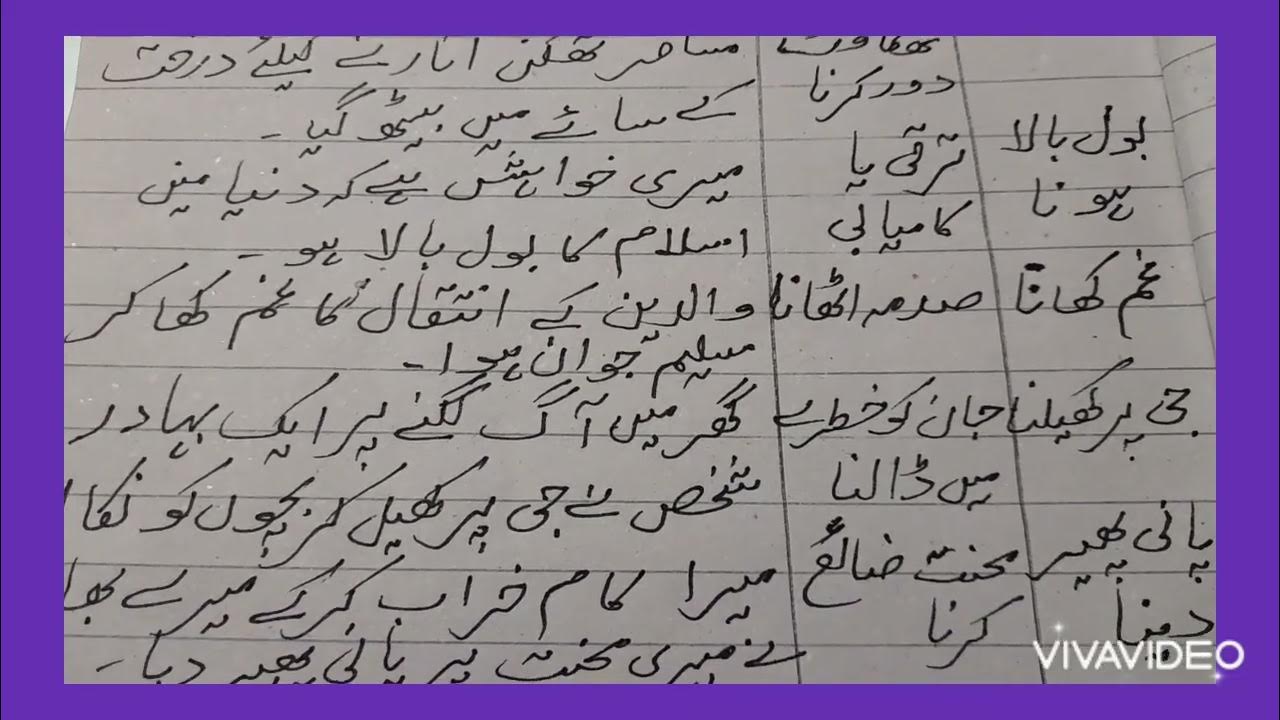 تھکاوٹ مسافر تھکن اتارنے کیلئے درخت
دور کرنا کے سائے میں بیٹھ گیا۔
بول بالا ترقی یا میری خواہش ہے کہ دنیا میں
ہونا کامیابی اسلام کا بول بالا ہو۔
غم کھانا صدمہ اٹھانا والدین کے انتقال کا غم کھا کر
سلیم جوان ہوا۔
جی پر کھیلنا جان کو خطرے گھر میں آگ لگنے پر ایک بہادر
میں ڈالنا شخص نے جی پر کھیل کر بچوں کو نکالا
پانی پھیر محنت ضائع میرا کام خراب کرکے میرے
دینا کرنا نے میری محنت پر پانی پھیر دیا۔
VIVAVIDEO